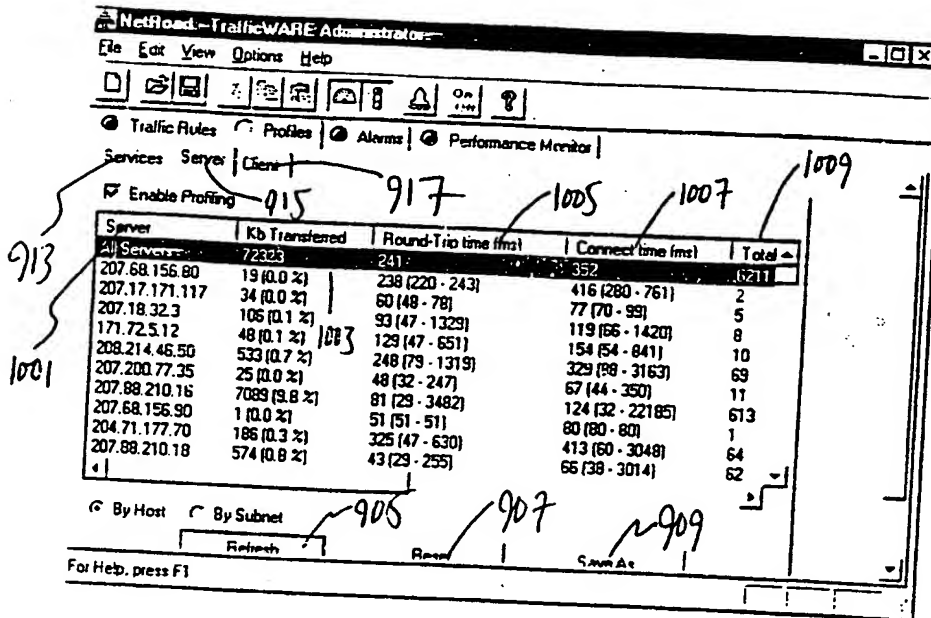 NetRoad - TrafficWARE Administrator
File Edit View Options Help
Traffic Rules Profiles Alarms Performance Monitor
1009
Services Server Client
Enable Profiling
915 917 1005 1007
913
Server Kb Transferred Round-Trip time (ms) Connect time (ms) Total
All Servers 72323 241 352 6211
207.68.156.80 19 (0.0 %) 238 (220 - 243) 416 (280 - 761) 2
207.17.171.117 34 (0.0 %) 60 (48 - 78) 77 (70 - 99) 5
207.18.32.3 106 (0.1 %) 93 (47 - 1329) 119 (66 - 1420) 8
171.72.5.12 48 (0.1 %) 1003 129 (47 - 651) 154 (54 - 841) 10
1001
208.214.46.50 533 (0.7 %) 248 (79 - 1319) 329 (98 - 3163) 69
207.200.77.35 25 (0.0 %) 48 (32 - 247) 67 (44 - 350) 11
207.88.210.16 7089 (9.8 %) 81 (29 - 3482) 124 (32 - 22185) 613
207.68.156.90 1 (0.0 %) 51 (51 - 51) 80 (80 - 80) 1
204.71.177.70 186 (0.3 %) 325 (47 - 630) 413 (60 - 3048) 64
207.88.210.18 574 (0.8 %) 43 (29 - 255) 66 (38 - 3014) 62
By Host By Subnet 905 907 909
Refresh Reset Save As
For Help, press F1